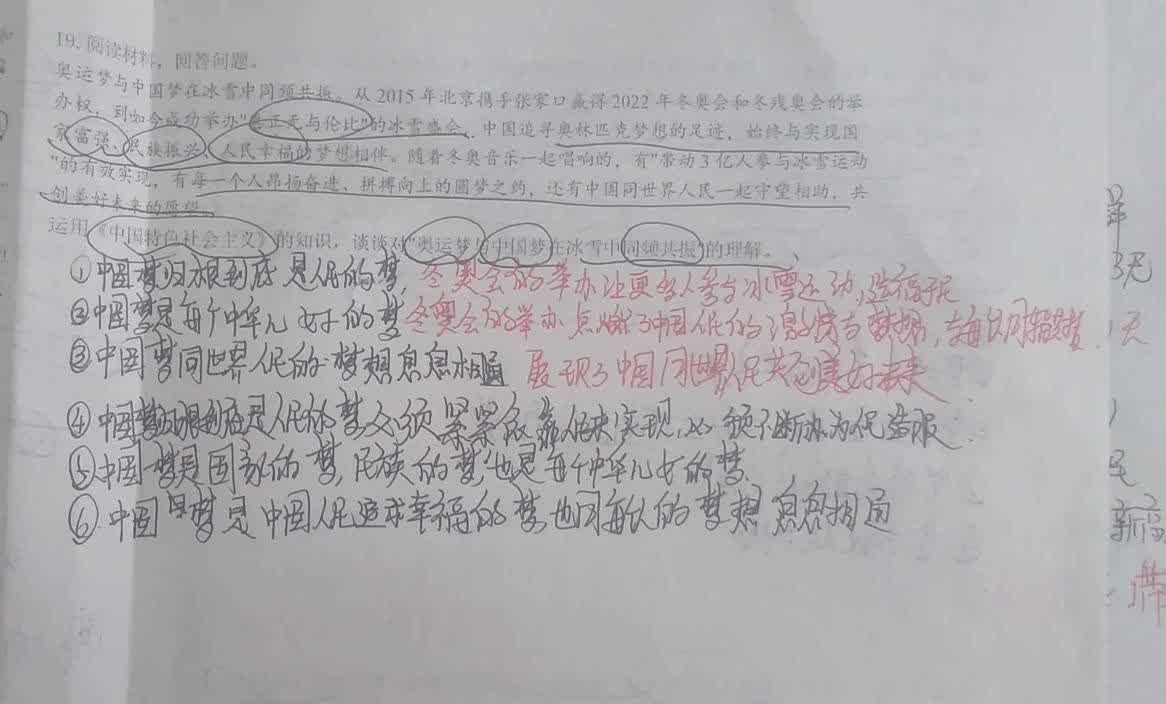 19. 阅读材料，回答问题。
奥运梦与中国梦在冰雪中同频共振。从2015年北京携手张家口赢得2022年冬奥会和冬残奥会的举
办权，到如今成功举办"真正无与伦比"的冰雪盛会，中国追寻奥林匹克梦想的足迹，始终与实现国
家富强、民族振兴、人民幸福的梦想相伴。随着冬奥音乐一起唱响的，有"带动3亿人参与冰雪运动
"的有效实现，有每一个人昂扬奋进、拼搏向上的圆梦之约，还有中国同世界人民一起守望相助、共
创美好未来的愿望。
运用《中国特色社会主义》的知识，谈谈对"奥运梦与中国梦在冰雪中同频共振"的理解。
①中国梦归根到底是人民的梦，冬奥会的举办让更多人参与冰雪运动，造福于民
②中国梦是每个中华儿女的梦 冬奥会的举办点燃了中国人民的激情与梦想，与每
③中国梦同世界人民的梦想息息相通 展现了中国同世界人民共创美好未来
④中国梦归根到底是人民的梦，必须紧紧依靠人民来实现，必须不断为人民造服
⑤中国梦是国家的梦，民族的梦，也是每个中华儿女的梦.
⑥中国梦是中国人民追求幸福的梦，也同每人的梦想息息相通
天
天
福